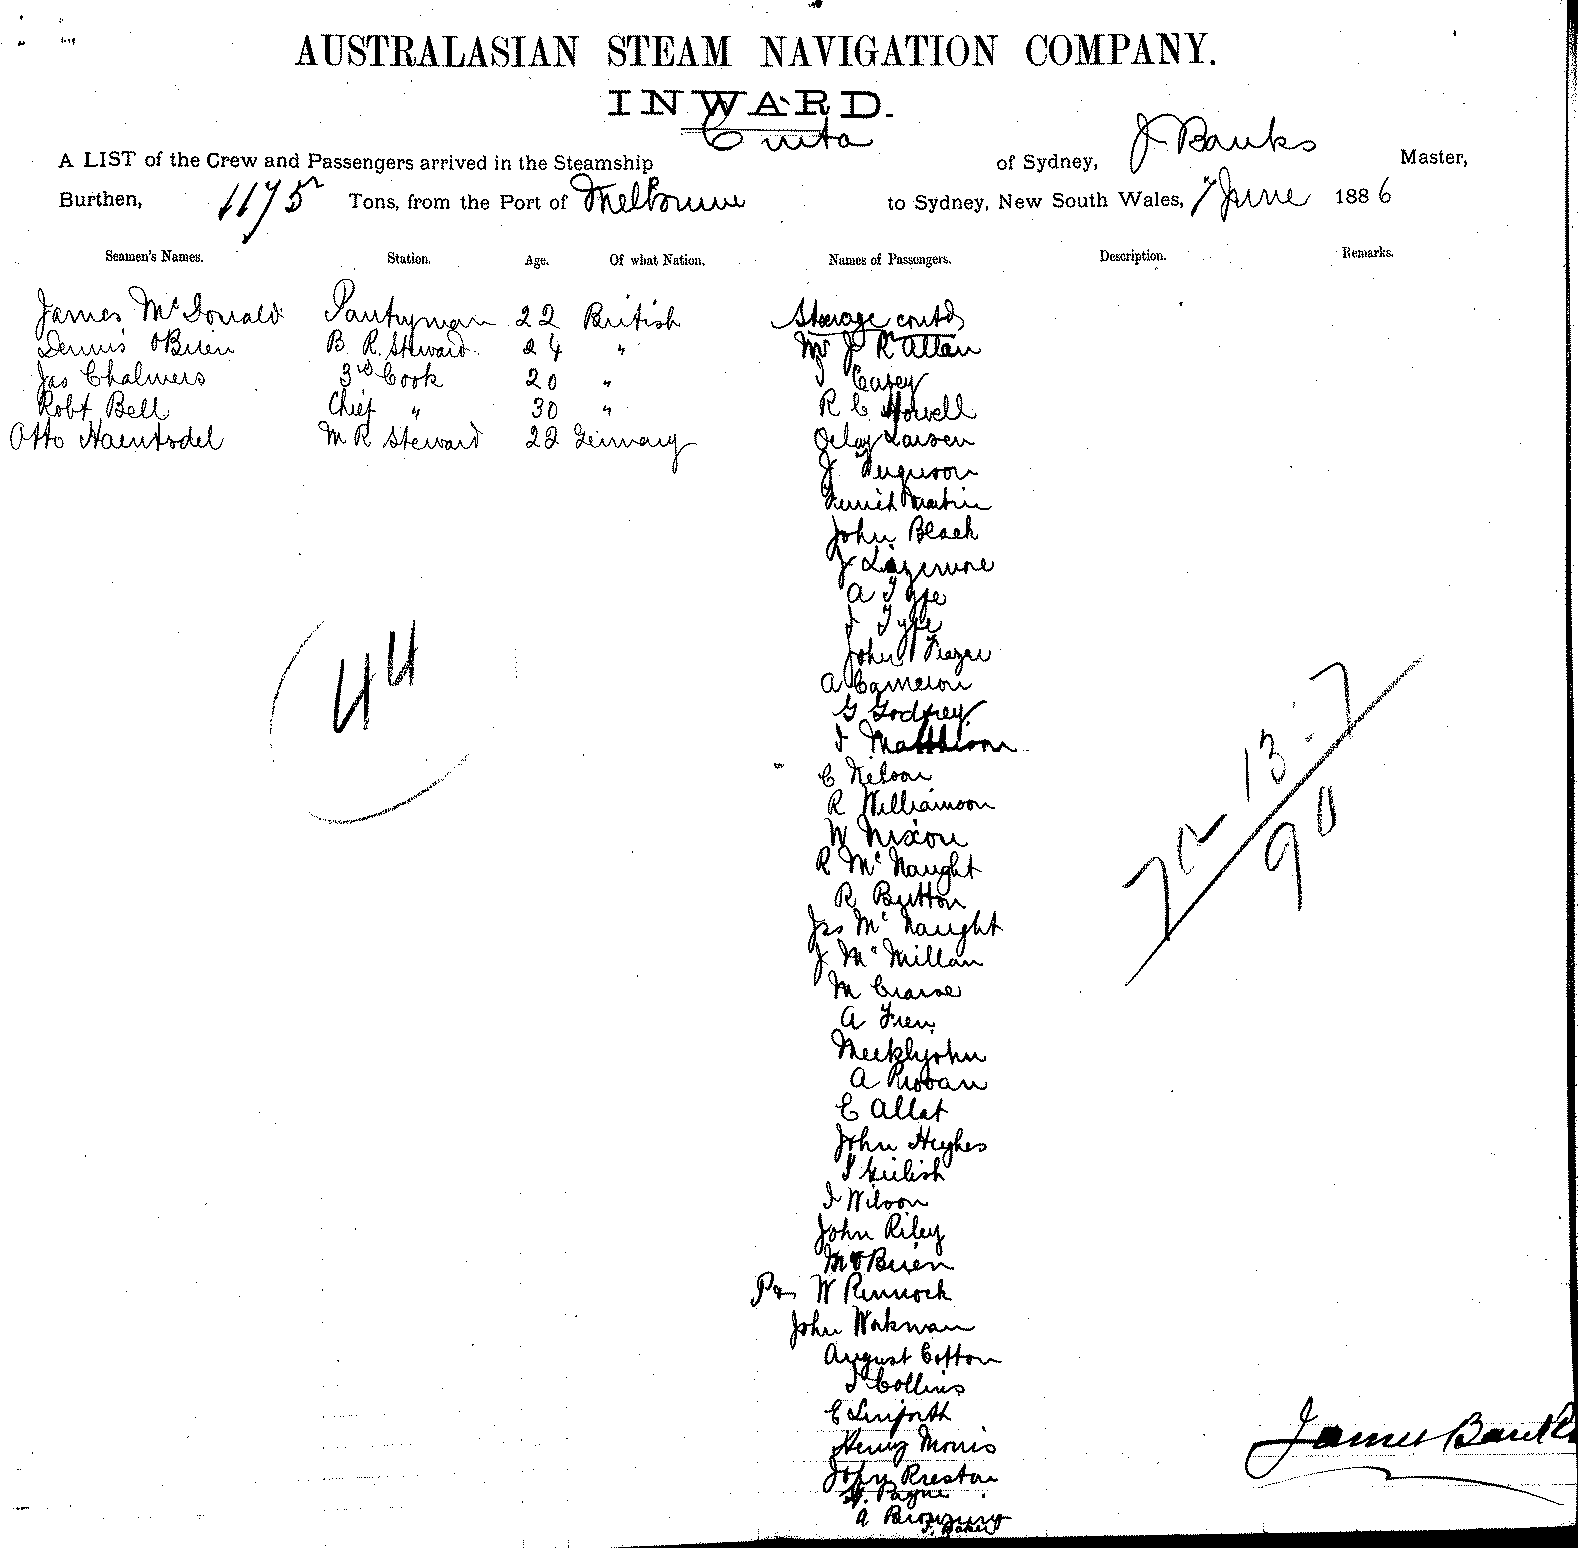 AUSTRALASIAN STEAM NAVIGATION COMPANY.
INWARD.
A LIST of the Crew and Passengers arrived in the Steamship of Sydney, J Banks Master,
Burthen, 1175 Tons, from the Port of Melbourne to Sydney, New South Wales, 7 June 1886
Seamen's Names. Station. Age. Of what Nation. Names of Passengers. Description. Remarks.
James McDonald Pantryman 22 British Steerage contd
Dennis OBrien B R Steward 24 " Mr J R Allan
Jas Chalmers 3rd Cook 20 " Casey
Robt Bell Chief " 30 " R C Howell
Otto Haentzdel M R Steward 22 Germany Larsen
J Ferguson
Martin
John Black
J
A Fyfe
J Fyfe
John Frazer
A Cameron
G Godfrey
J Matthison
C Nelson
R Williamson
W Nixon
R McNaught
R Button
Jas McNaught
J McMillan
M
A
Meeklyohn
A Rowan
C Allat
John Hughes
J
J Wilson
John Riley
M OBrien
W Pennock
John Workman
August Cotton
J Collins
C Linforth
Henry Morris
John Preston
H. Payne
A Browning
J. Baker
44
13 . 7
90
James Banks